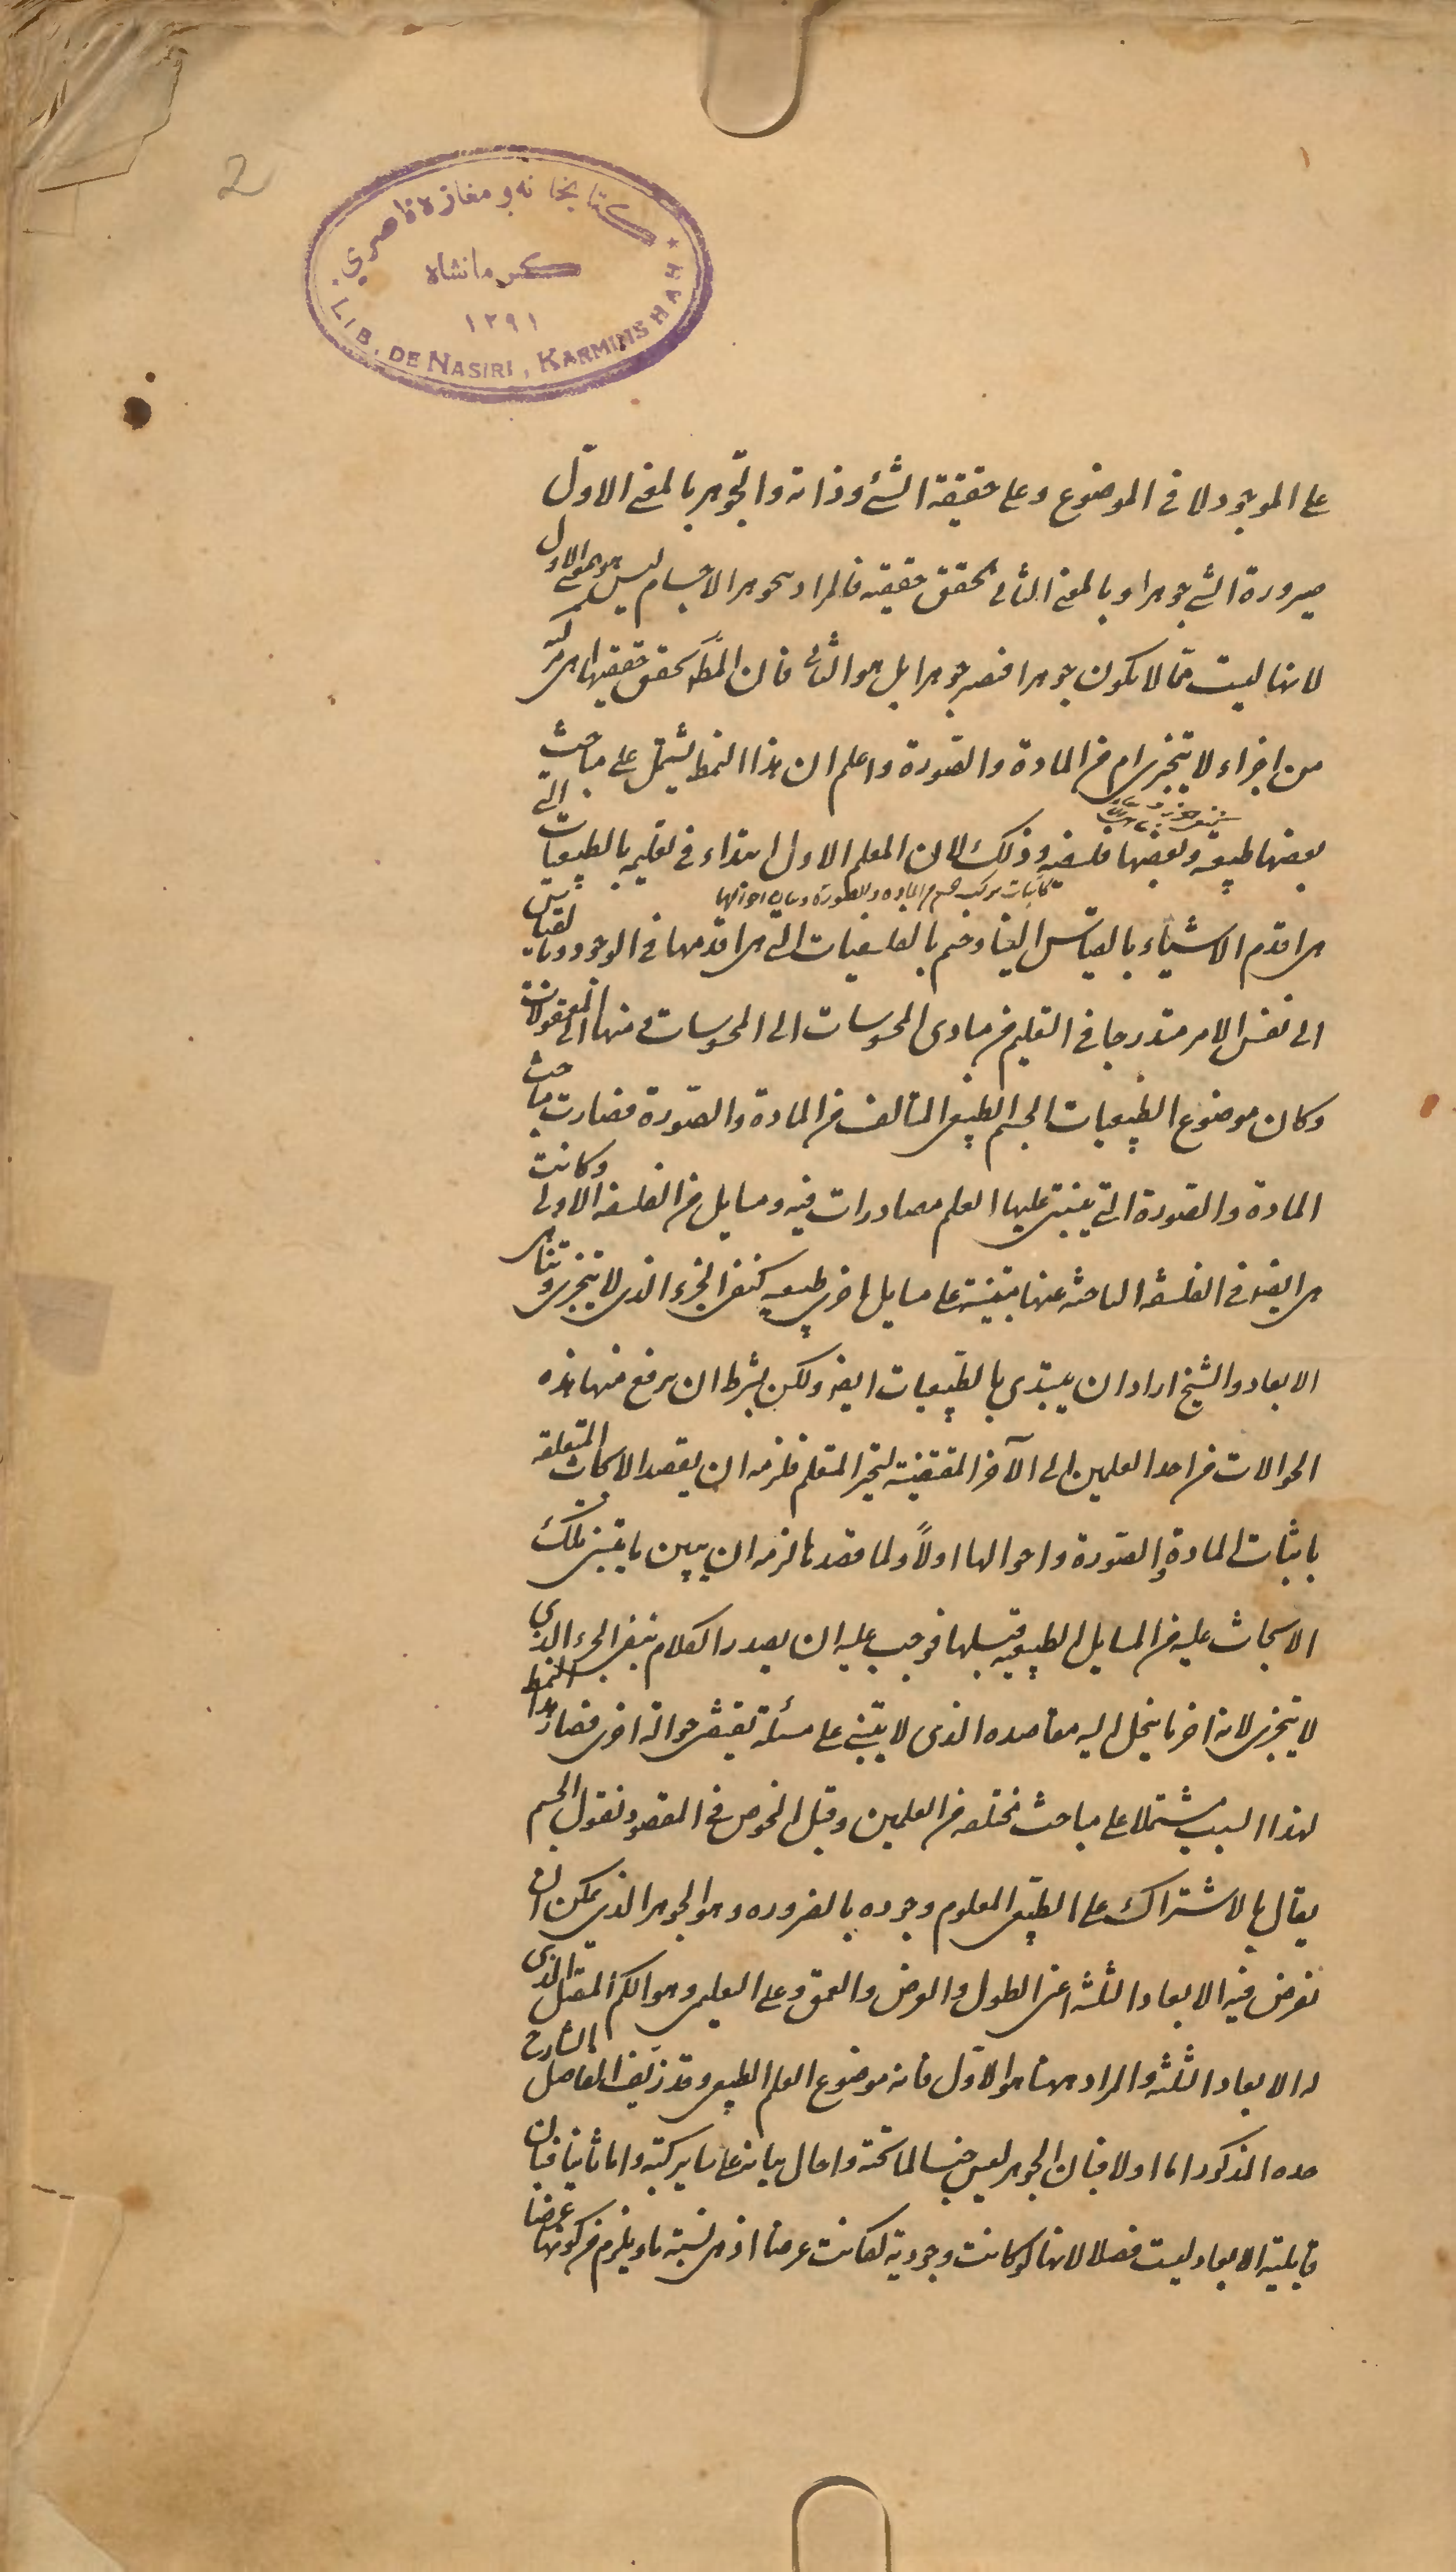 2
كتابخانه و مغازه ناصري
كرمانشاه
١٢٩١
LIB. DE NASIRI, KARMINSHAH
على الموجود لا فى الموضوع وعلى حقيقة الشئ وذاته والتجوهر بالمعنى الاول
صيرورة الشئ جوهرا وبالمعنى الثانى تحقق حقيقته فالمراد بتجوهر الاجسام ليس هو بالمعنى الاول
لانها ليست ممّا لا يكون جوهرا فتصير جوهرا بل هو الثانى فان المط تحقق حقيقتها اهى مركبة
من اجزاء لا يتجزى ام من المادة والصّورة واعلم ان هذا النمط يشتمل على مباحث
بعضها طبيعية وبعضها فلسفية وذلك لان المعلم الاول ابتداء فى تعليمه بالطبيعيات التى
كاثبات تركب الجسم من المادة والصورة وبيان احوالها
هى اقدم الاشياء بالقياس الينا وختم بالفلسفيات التى هى اقدمها فى الوجود وبالقياس
الى نفس الامر متدرجا فى التعليم من مبادى المحسوسات الى المحسوسات ومنها الى المعقولات
وكان موضوع الطبيعيات الجسم الطبيعى المتالف من المادة والصّورة فصارت مباحث
المادة والصّورة التى يبتنى عليها العلم مصادرات فيه ومسايل من الفلسفة الاولى وكانت
هى ايضا فى الفلسفة الباحثة عنها مبتنية على مسايل اخرى طبيعية كنفى الجزء الذى لا يتجزى وتناهى
الابعاد والشيخ اراد ان يبتدى بالطبيعيات ايضا ولكن بشرط ان يرفع منها هذه
الحوالات من احد العلمين الى الآخر المقتضية لتحير المتعلم فلزمه ان يقصد الابحاث المتعلقة
باثبات المادة والصّورة واحوالها اولاً ولما قصدها لزمه ان يبين ما يبتنى تلك
الابحاث عليه من المسايل الطبيعية قبلها فوجب عليه ان يصدر الكلام بنفى الجزء الذى
لا يتجزى لانه اخر ما ينحل اليه مقاصده الذى لا يبتنى على مسئلة تقتضى حوالة اخرى فصار هذا النمط
لهذا السبب مشتملا على مباحث مختلفة من العلمين وقبل الخوض فى المقصود نقول الجسم
يقال بالاشتراك على الطبيعى المعلوم وجوده بالضرورة وهو الجوهر الذى يمكن ان
نفرض فيه الابعاد الثلثة اعنى الطول والعرض والعمق وعلى التعليمى وهو الكم المتصل الذى
له الابعاد الثلثة والمراد هيهنا هو الاول فانه موضوع العلم الطبيعى وقد زيّف الفاضل الشارح
حده المذكور اما اولا فبان الجوهر ليس جنسا لما تحته واحال بيانه على ساير كتبه واما ثانيا فبان
قابلية الابعاد ليست فصلا لانها لو كانت وجودية لكانت عرضا اذ هى نسبة ما ويلزم من كونها عرضا